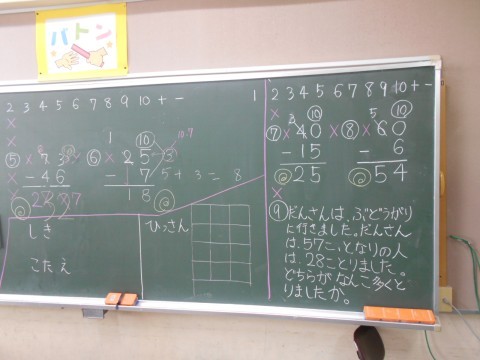 バトン
2 3 4 5 6 7 8 9 10 + −
1 2 3 4 5 6 7 8 9 10 + −
⑤
73
− 46
27
⑥
1 10
25
− 17
5 + 3 = 8
18
⑦
10
40
− 15
25
⑧
5 10
60
− 6
54
しき
こたえ
ひっさん
⑨ だんさんは、ぶどうがり
に行きました。だんさん
は、57こ、となりの人
は、28ことりました。
どちらがなんこ多くと
りましたか。